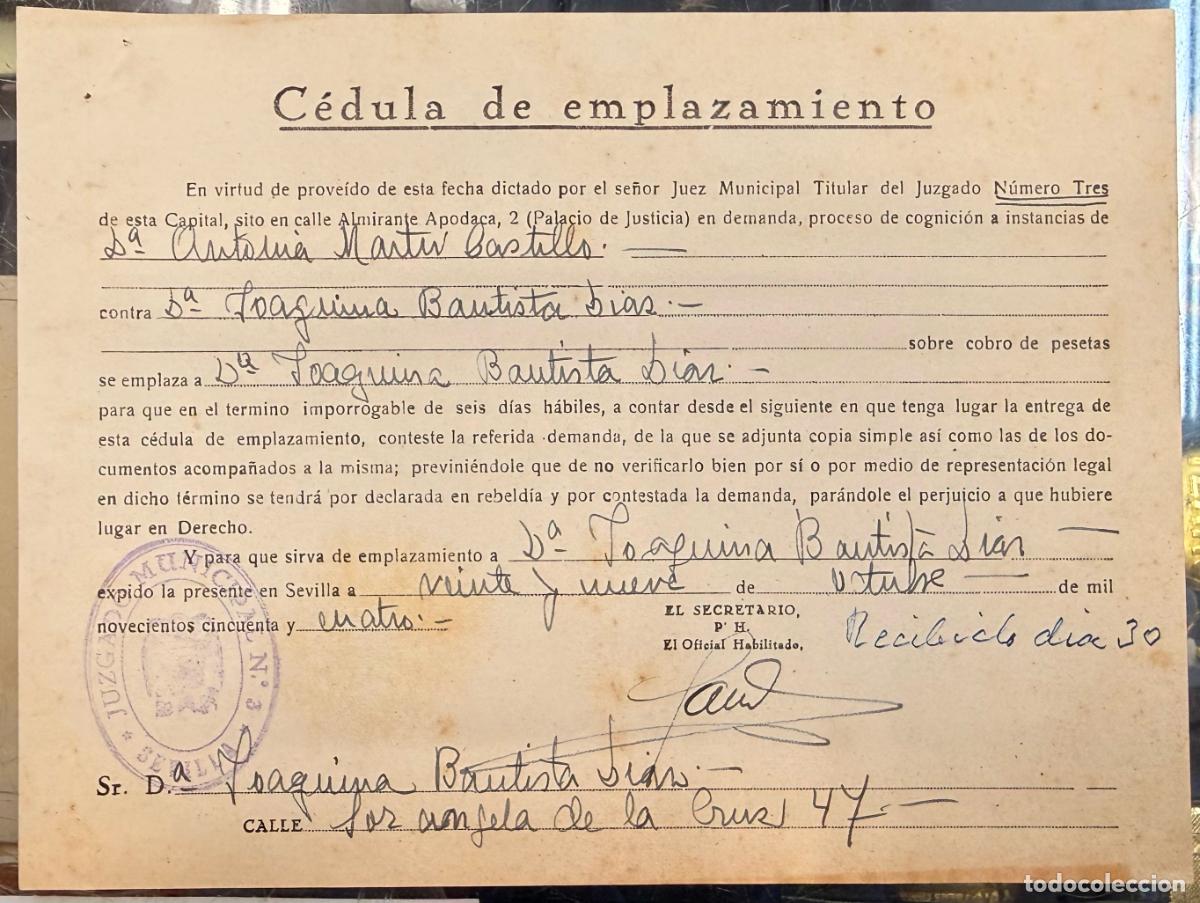 Cédula de emplazamiento
En virtud de proveído de esta fecha dictado por el señor Juez Municipal Titular del Juzgado Número Tres
de esta Capital, sito en calle Almirante Apodaca, 2 (Palacio de Justicia) en demanda, proceso de cognición a instancias de
Dª Antonia Martin Castillo. —
contra Dª Joaquina Bautista Dias. —
sobre cobro de pesetas
se emplaza a Dª Joaquina Bautista Dias. —
para que en el termino imporrogable de seis días hábiles, a contar desde el siguiente en que tenga lugar la entrega de
esta cédula de emplazamiento, conteste la referida demanda, de la que se adjunta copia simple así como las de los do-
cumentos acompañados a la misma; previniéndole que de no verificarlo bien por sí o por medio de representación legal
en dicho término se tendrá por declarada en rebeldía y por contestada la demanda, parándole el perjuicio a que hubiere
lugar en Derecho.
Y para que sirva de emplazamiento a Dª Joaquina Bautista Dias —
expido la presente en Sevilla a veinte y nueve de octubre — de mil
novecientos cincuenta y cuatro. —
EL SECRETARIO,
P. H.
El Oficial Habilitado,
Recibido dia 30
JUZGADO MUNICIPAL N.º 3
* SEVILLA *
Sr. D.ª Joaquina Bautista Dias. —
CALLE Sor angela de la Cruz 47. —
todocoleccion